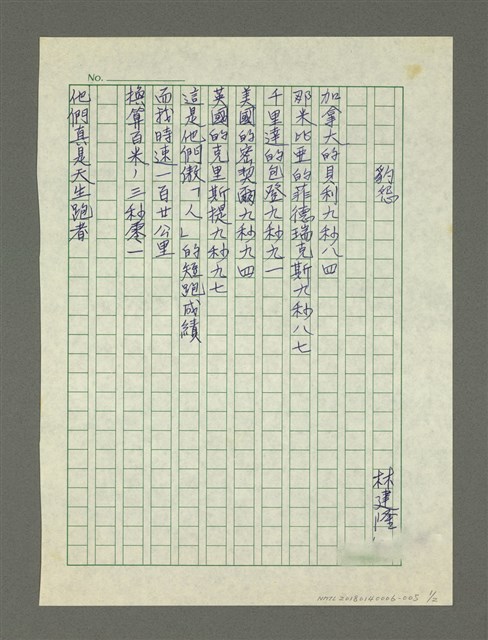 No.
豹怨
林建隆
加拿大的貝利九秒八四
那米比亞的菲德瑞克斯九秒八七
千里達的包登九秒九一
美國的密契爾九秒九四
英國的克里斯提九秒九七
這是他們做「人」的短跑成績
而我時速一百廿公里
換算百米,三秒零一
他們真是天生跑者
NMTL20180140006-005 1/2